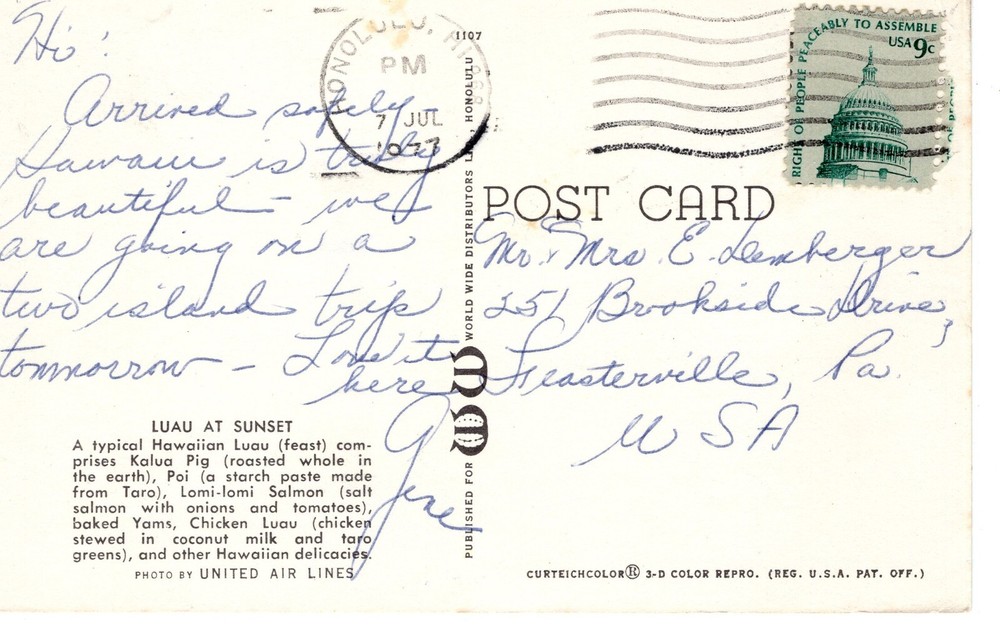 Hi!
Arrived safely
Hawaii is truly
beautiful - we
are going on a
two island trip
tomorrow - Love it
here
Gene
LUAU AT SUNSET
A typical Hawaiian Luau (feast) com-
prises Kalua Pig (roasted whole in
the earth), Poi (a starch paste made
from Taro), Lomi-lomi Salmon (salt
salmon with onions and tomatoes),
baked Yams, Chicken Luau (chicken
stewed in coconut milk and taro
greens), and other Hawaiian delicacies.
PHOTO BY UNITED AIR LINES
1107
PUBLISHED FOR WW WORLD WIDE DISTRIBUTORS HONOLULU
HONOLULU, HI
PM
7 JUL
1977
RIGHT OF PEOPLE PEACEABLY TO ASSEMBLE
USA 9c
POST CARD
Mr. & Mrs. E. Lemberger
251 Brookside Drive,
Feasterville, Pa.
USA
CURTEICHCOLOR® 3-D COLOR REPRO. (REG. U.S.A. PAT. OFF.)